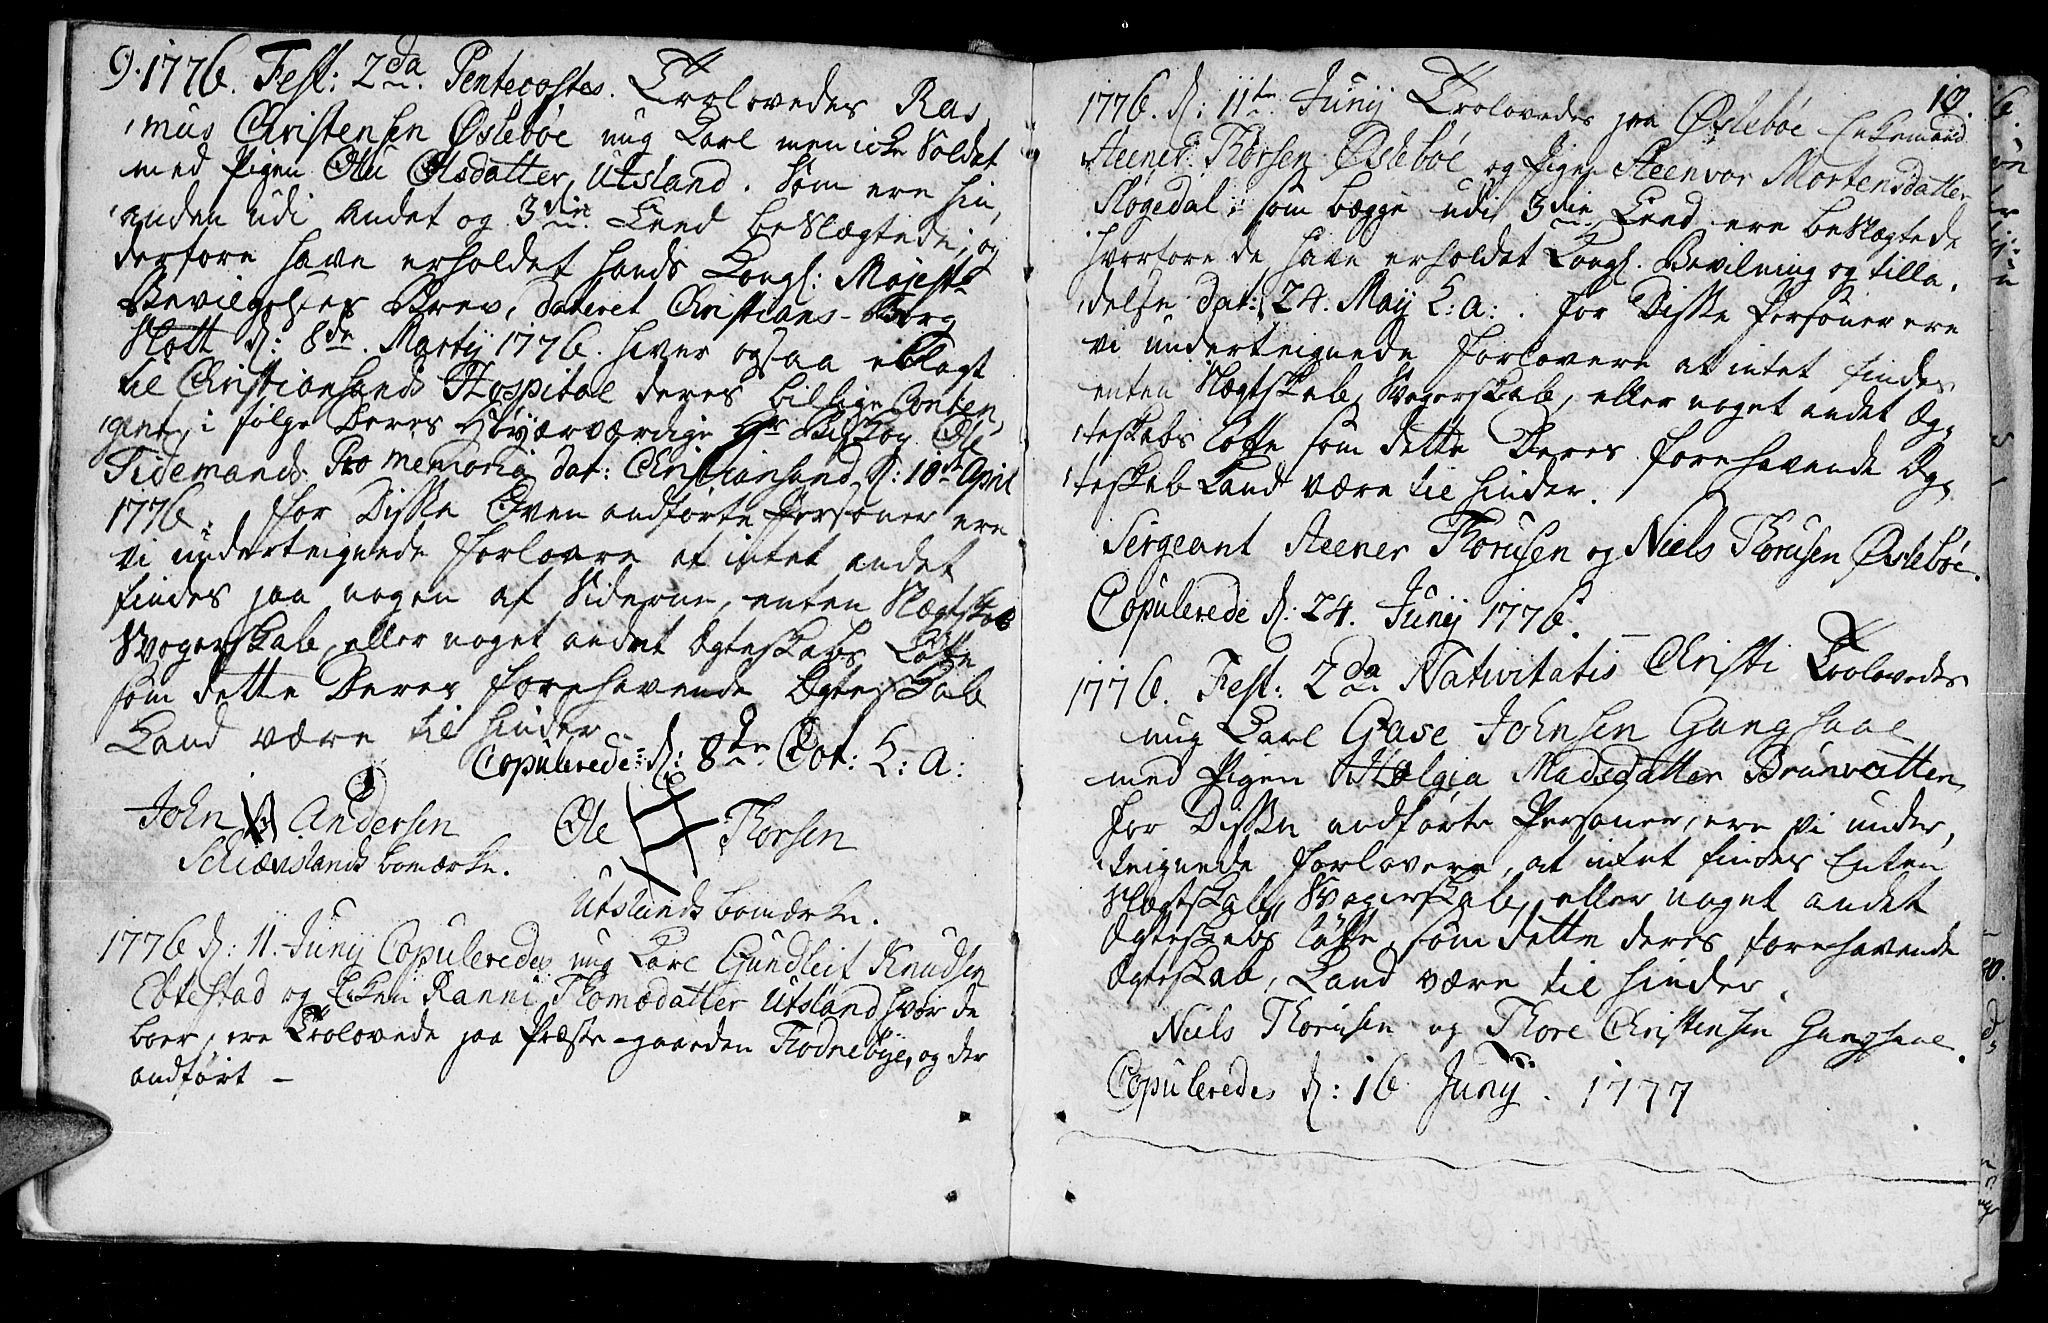 9. 1776. Fest: 2da Pentecostes. Trolovedes Ras¸
¸mus Christensen Øslebøe ung Karl men icke Soldat
med Pigen Olu Olsdatter Utsland. Som ere hin¸
¸anden udi Andet og 3die Leed beslægtede; og
derfore have erholdet Hands Kongl: Majestts
Bevilgelses Brev, dateret Christians-Borg
Slott d: 8de Martij 1776. haver ogsaa erlagt
til Christiansands Hospital deres billige Conten¸
¸gent, i følge Deres Høyærværdige Hr Biskop Ole
Tidemands Pro Memoria dat: Christiansand d: 18de April
1776. For Disse Oven andførte Personer ere
vi underteignede Forlovere at intet andet
findes paa nogen af Siderne, enten Slægtskab
Svogerskab, eller noget andet Ægteskabs Løfte
som dette Deres forehavende Ægteskab
Kand være til Hinder
Copulerede d: 8de Oct: h: a:
John Andersen Ole Thorsen
Schiævislands bomærke.
Utslands bomærke.
1776 d: 11. Junij Copulerede ung Karl Gundleit Knudsen
Ebtestad og Enken Ranni Thomædatter Utsland hvor de
boer, ere Trolovede paa Præste-gaarden Frodnebøe, og der
andført –
10.
1776. d: 11te Junij Trolovedes paa Øslebøe Enkemand
Steener Thorsen Øslebøe og Pigen Steenvor Mortensdatter
Høgedal; som begge udi 3die Leed ere beslægtede
hvorfore de have erholdet Kongl. Bevilning og tilla¸
¸delse dat: 24. May h: a: . For Disse Personer ere
vi underteignede Forlovere at intet findes
enten Slægtskab, Svogerskab, eller noget andet Æg¸
¸teskabs Løfte som dette Deres forehavende Æg¸
¸teskab Kand være til hinder.
Sergeant Steener Thorusen og Niels Thorusen Øslebøe.
Copulerede d: 24. Junij 1776. –
1776. Fest: 2da Nativitatis Christi Trolovedes
ung Karl Gase Johnsen Gangsaae
med Pigen Hælgia Madsdatter Brunvatten,
For Disse andførte Personer, ere vi under¸
¸teignede Forlovere, at intet findes Enten
Slægtskab, Svogerskab, eller noget andet
Ægteskabs Løfte, som dette deres forehavende
Ægteskab, Kand være til hinder.
Niels Thorusen og Thore Christensen Gangsaae.
Copulerede d: 16 Junij. 1777